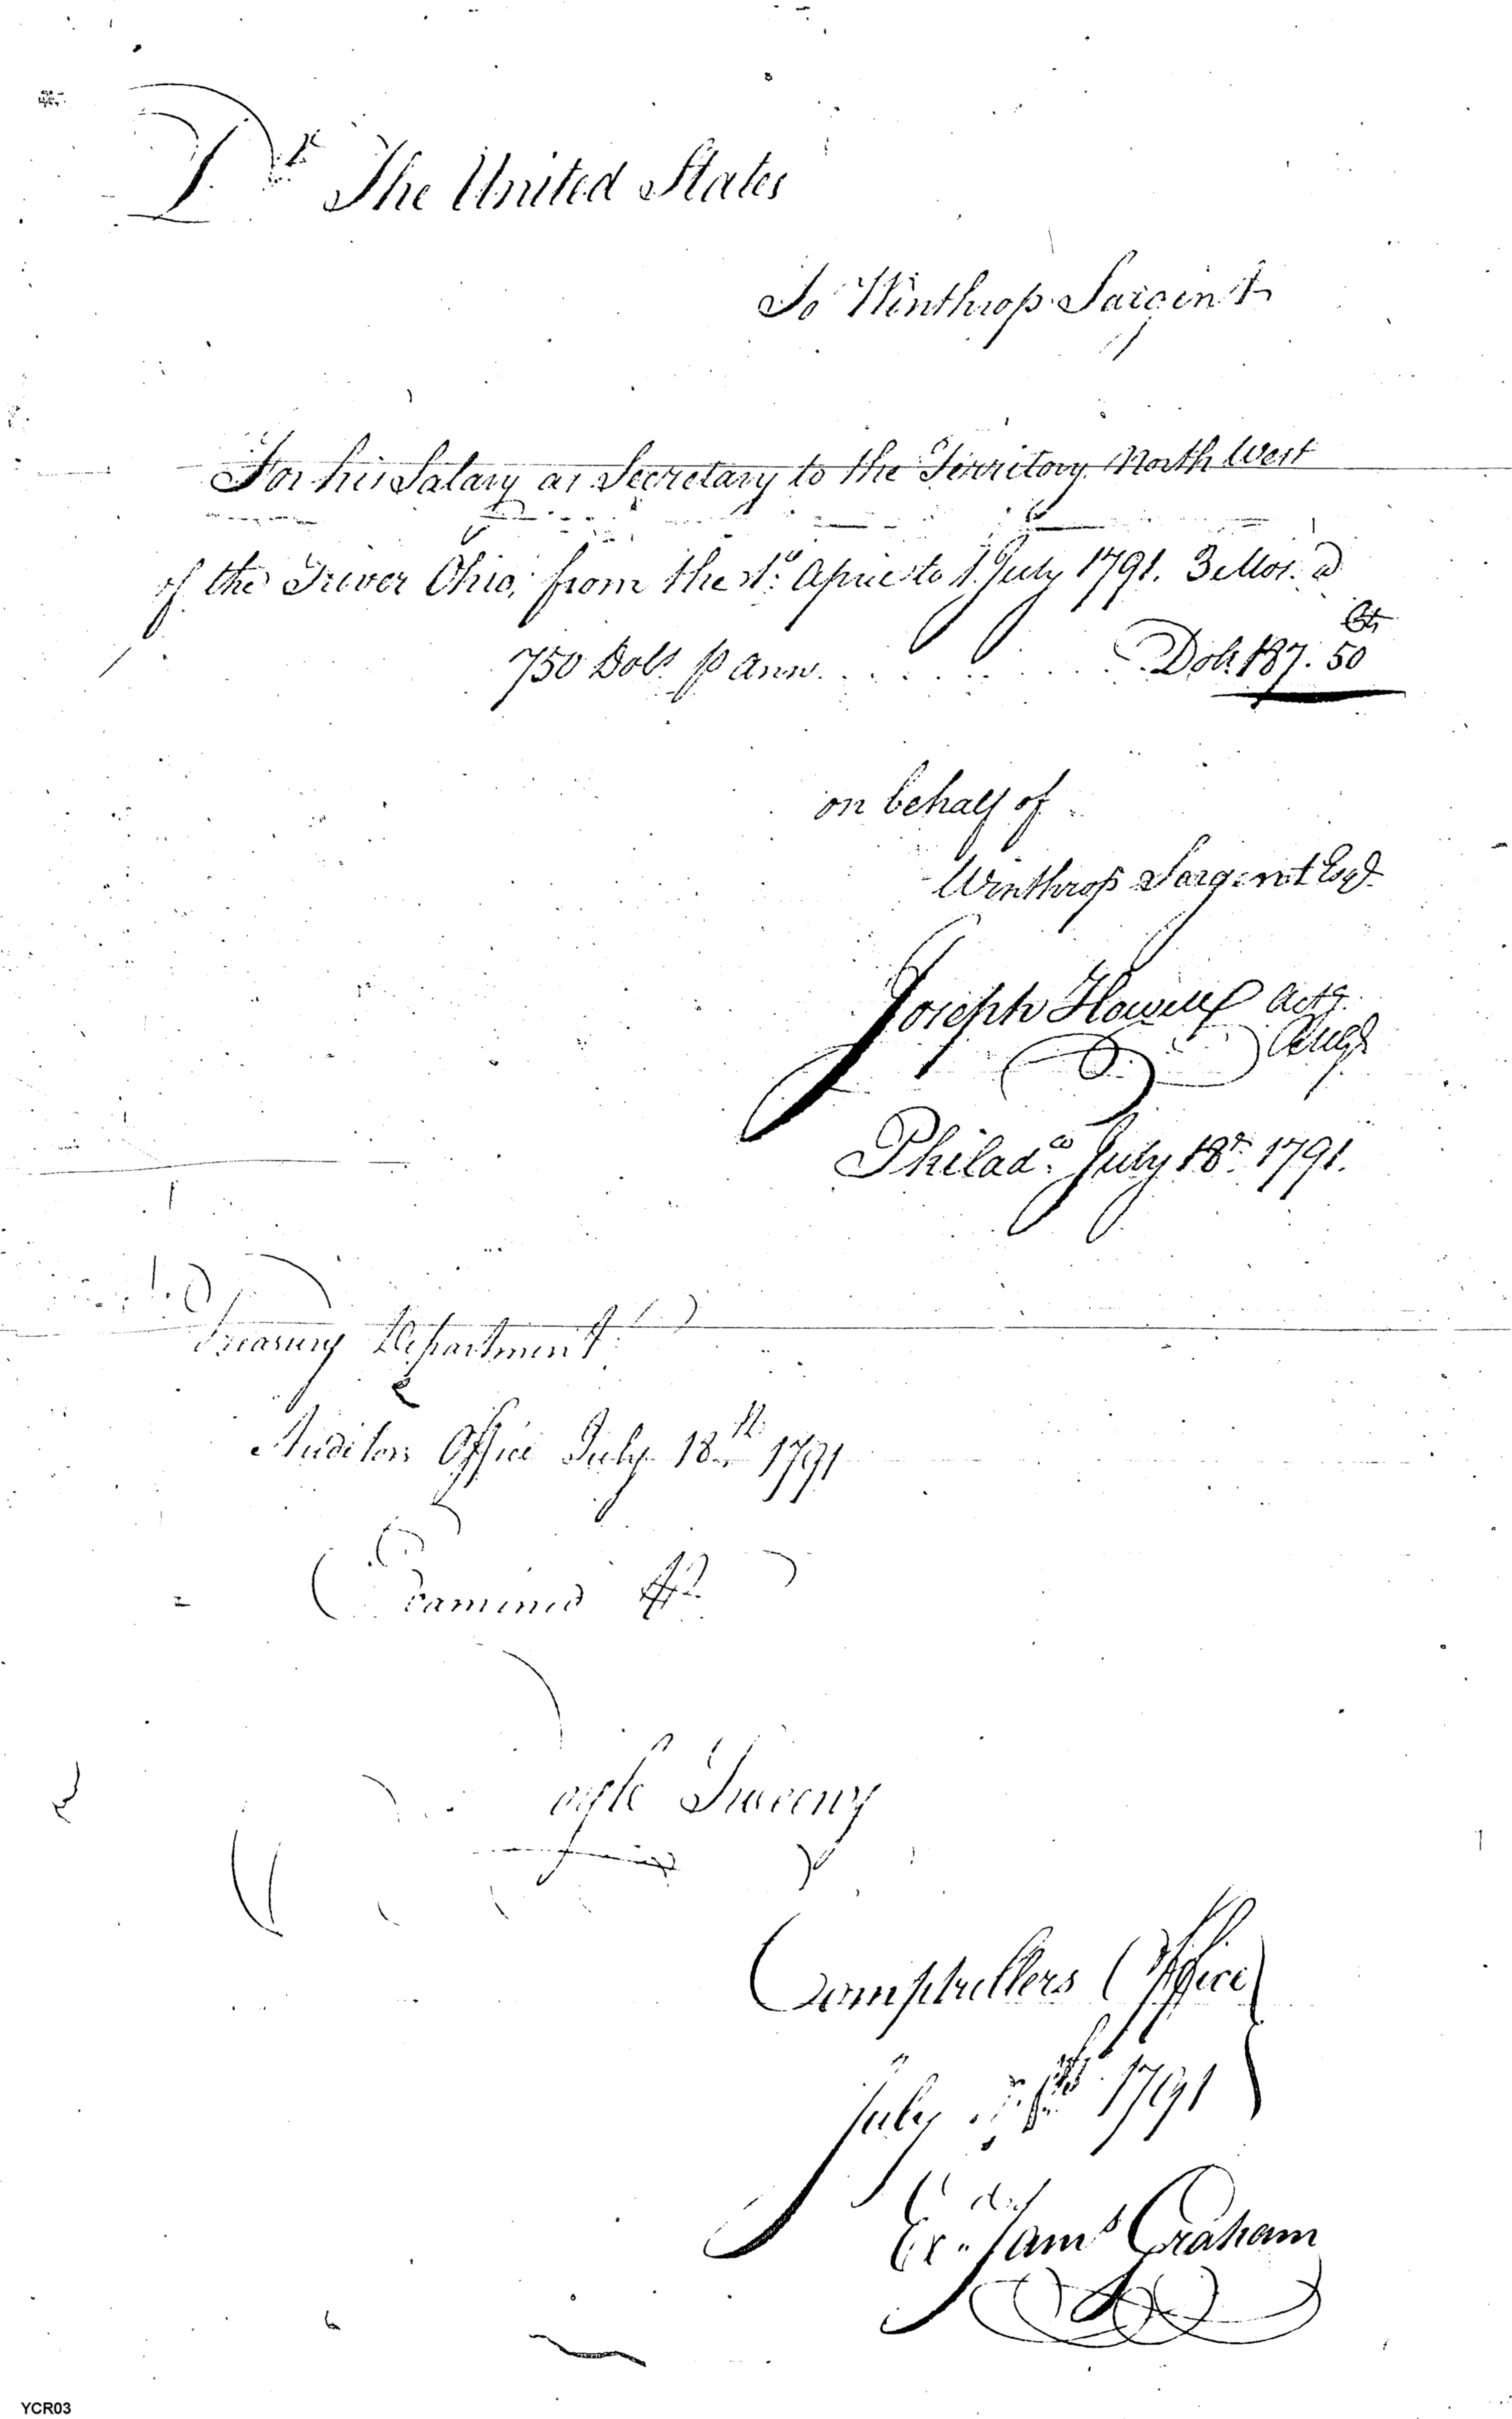 Dr The United States
To Winthrop Sargent
For his Salary as Secretary to the Territory North West
of the River Ohio, from the 1st April to 1 July 1791. 3 Mos. @
Cts
750 Dols. p Ann. . . . . . . . Dols. 187. 50
on behalf of
Winthrop Sargent Esqr
Joseph Howell actg
Philada. July 18th 1791.
Treasury Department
Auditors Office July 18th 1791
Examined
Tweeny
Comptrollers Office
July 1791
Exd. Jams Graham
YCR03